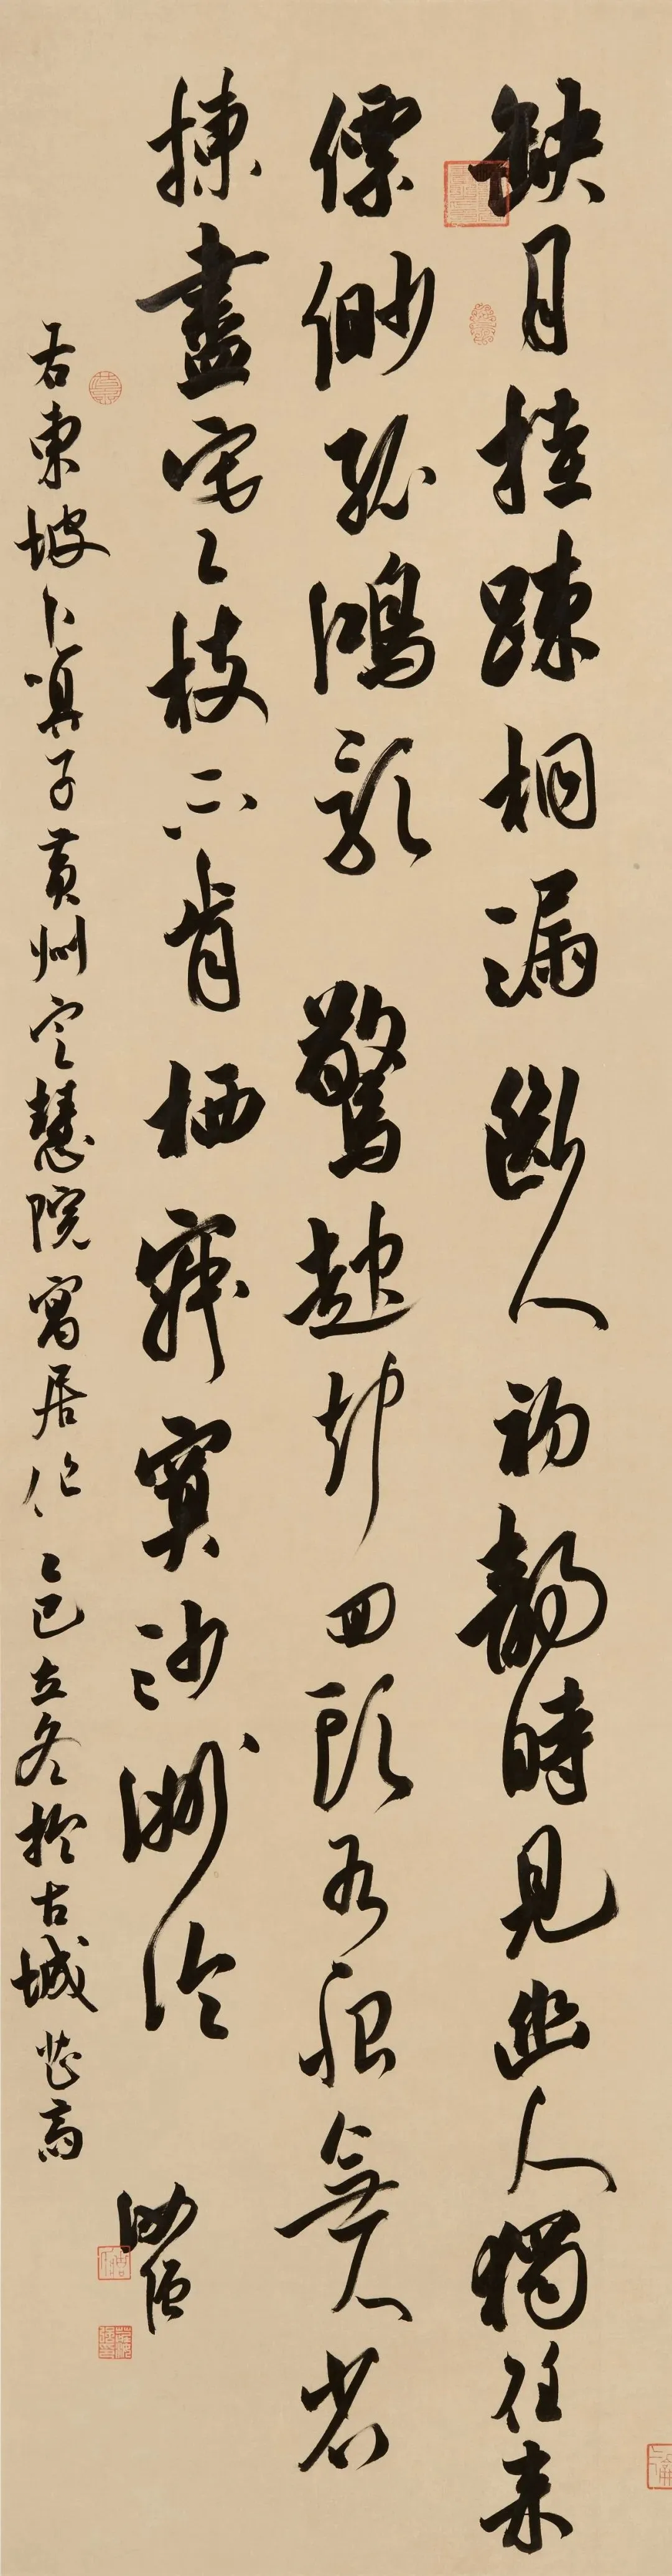 缺月挂疎桐漏斷人初靜時見幽人獨往来
縹緲孤鴻影驚起却回頭有恨無人省
揀盡寒枝不肯栖寂寞沙洲冷
右東坡卜算子黄州定慧院寓居作乙巳立冬於古城